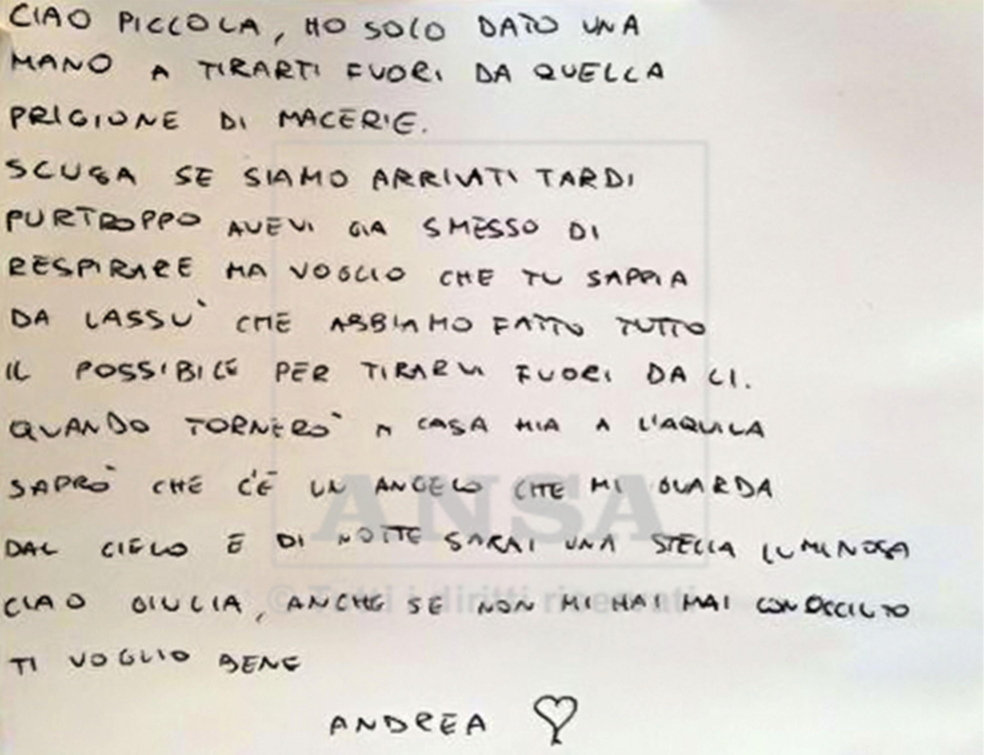 CIAO PICCOLA, HO SOLO DATO UNA
MANO A TIRARTI FUORI DA QUELLA
PRIGIONE DI MACERIE.
SCUSA SE SIAMO ARRIVATI TARDI
PURTROPPO AVEVI GIA SMESSO DI
RESPIRARE MA VOGLIO CHE TU SAPPIA
DA LASSU' CHE ABBIAMO FATTO TUTTO
IL POSSIBILE PER TIRARVI FUORI DA LI.
QUANDO TORNERO' A CASA MIA A L'AQUILA
SAPRO' CHE C'È UN ANGELO CHE MI GUARDA
DAL CIELO E DI NOTTE SARAI UNA STELLA LUMINOSA
CIAO GIULIA, ANCHE SE NON MI HAI MAI CONOSCIUTO
TI VOGLIO BENE
ANDREA
ANSA
© Tutti i diritti riservati